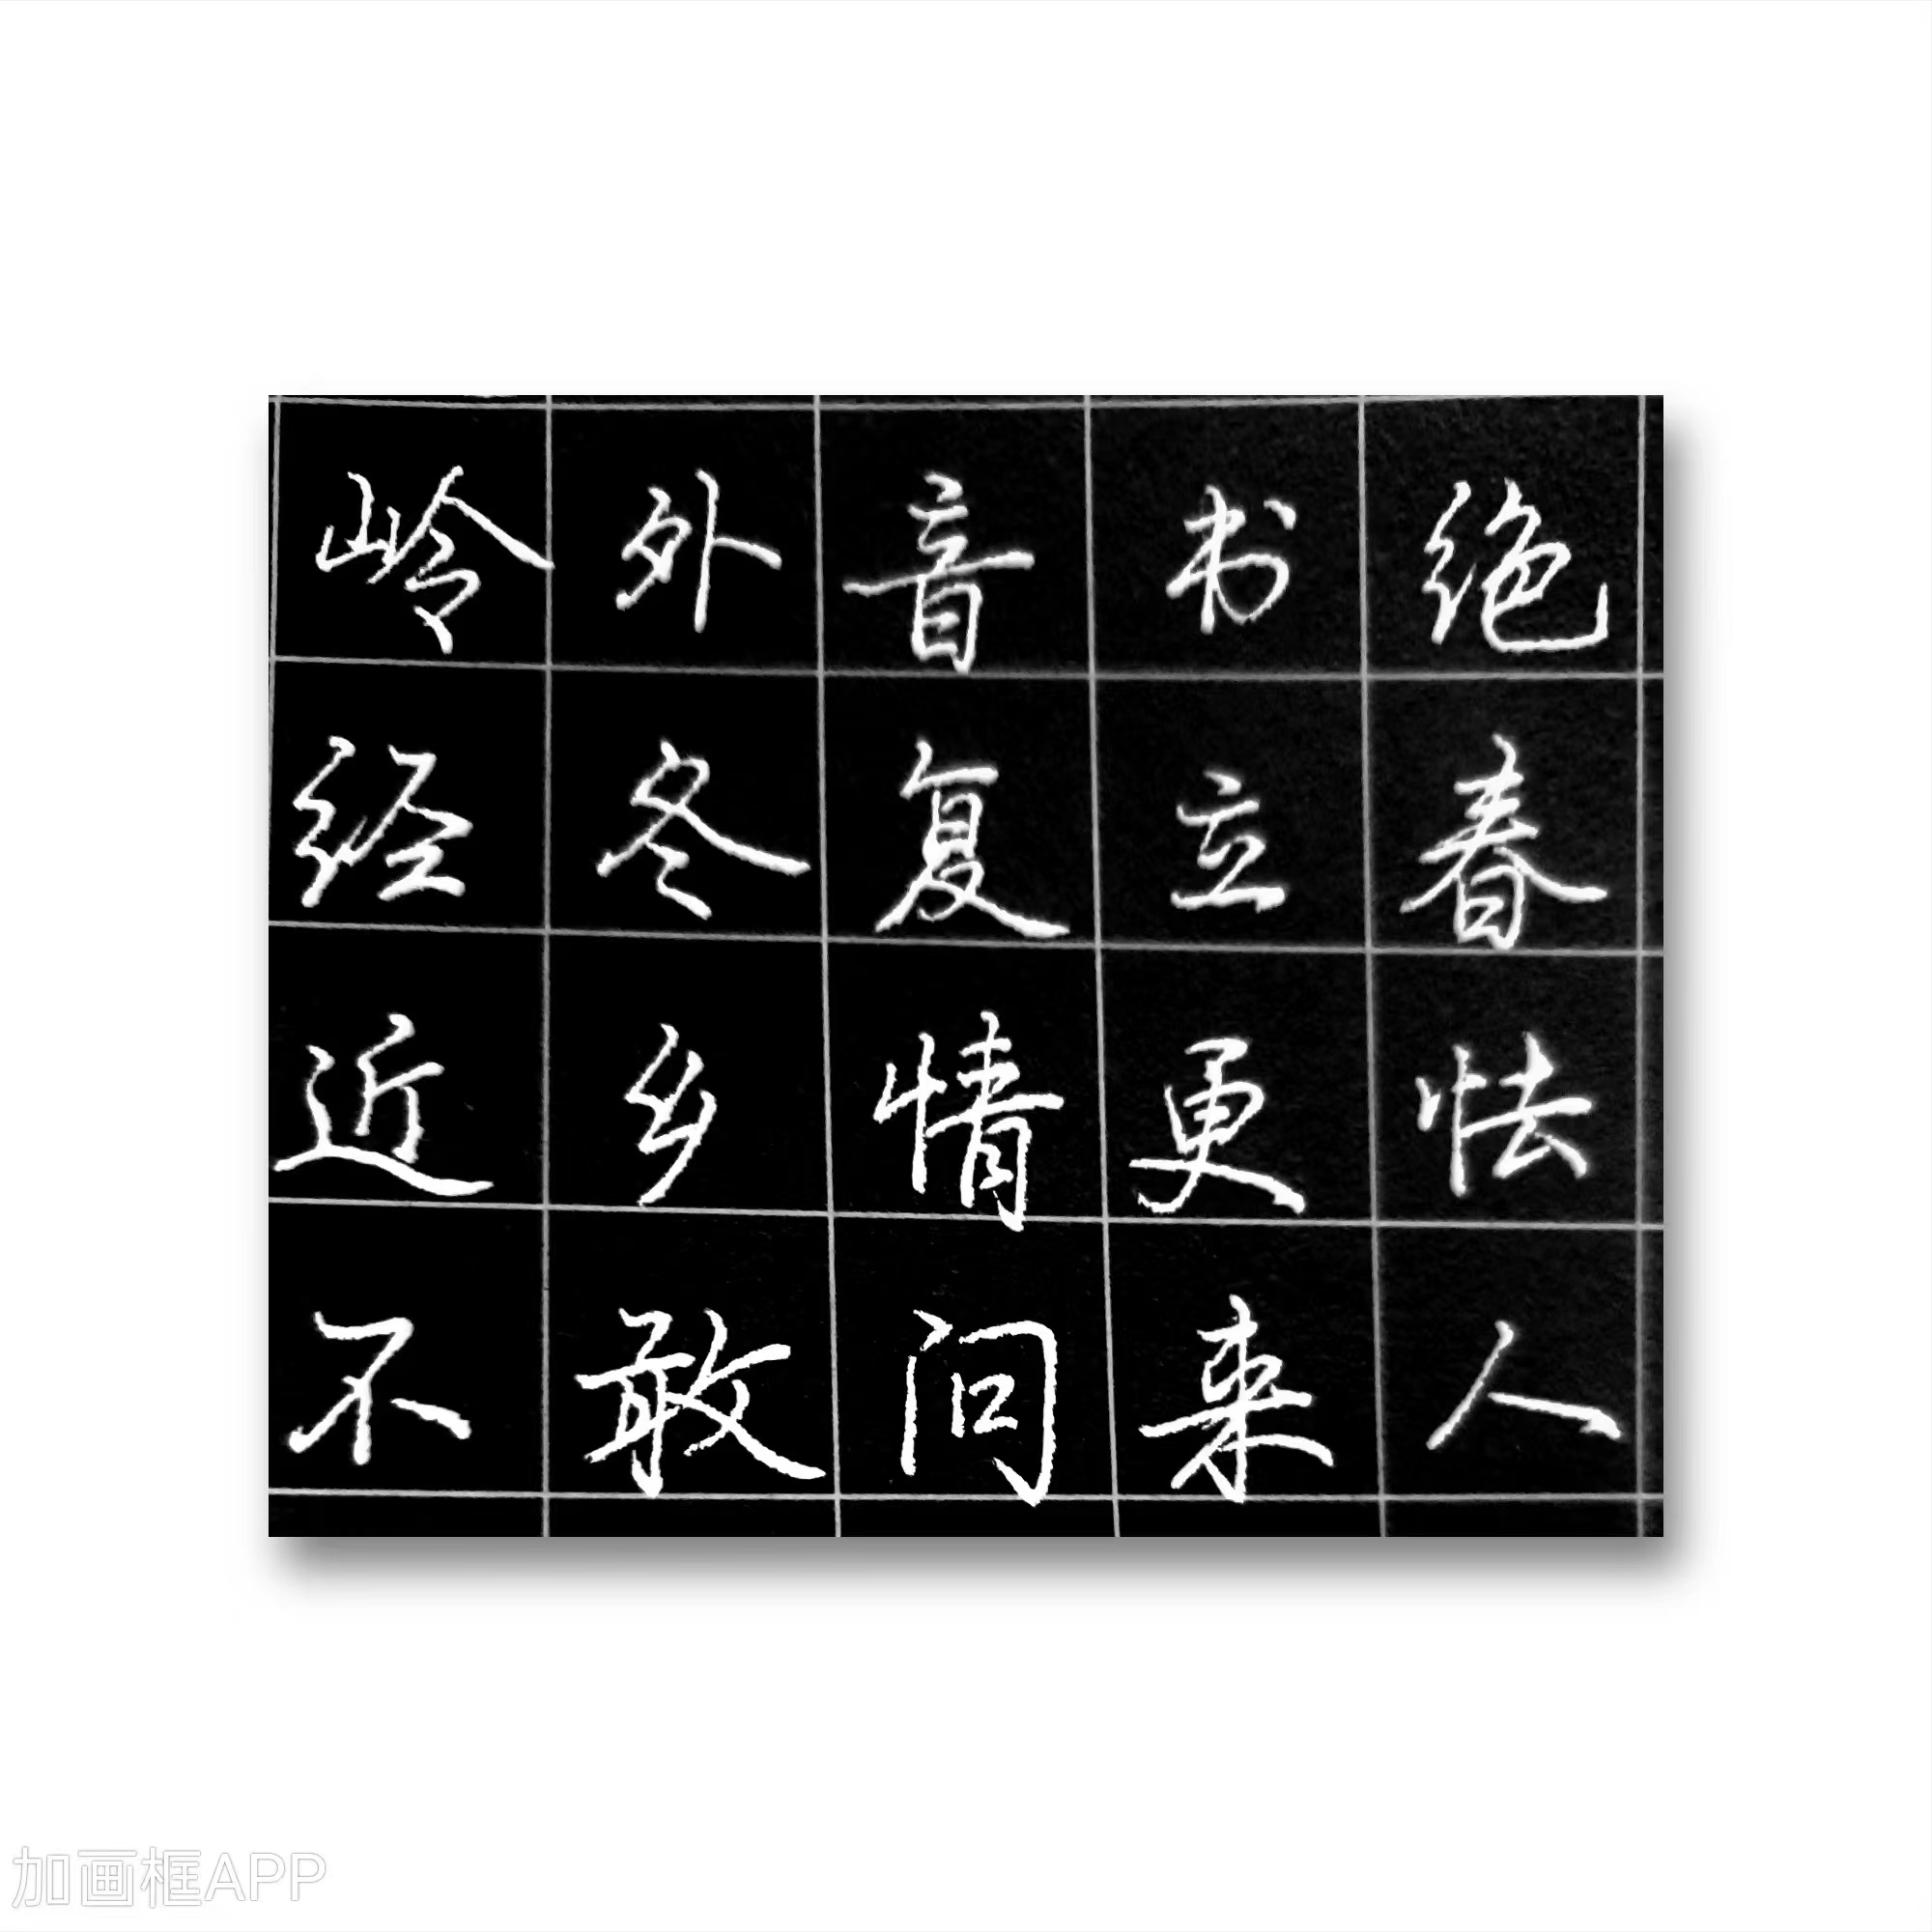 岭外音书绝
经冬复立春
近乡情更怯
不敢问来人
加画框APP